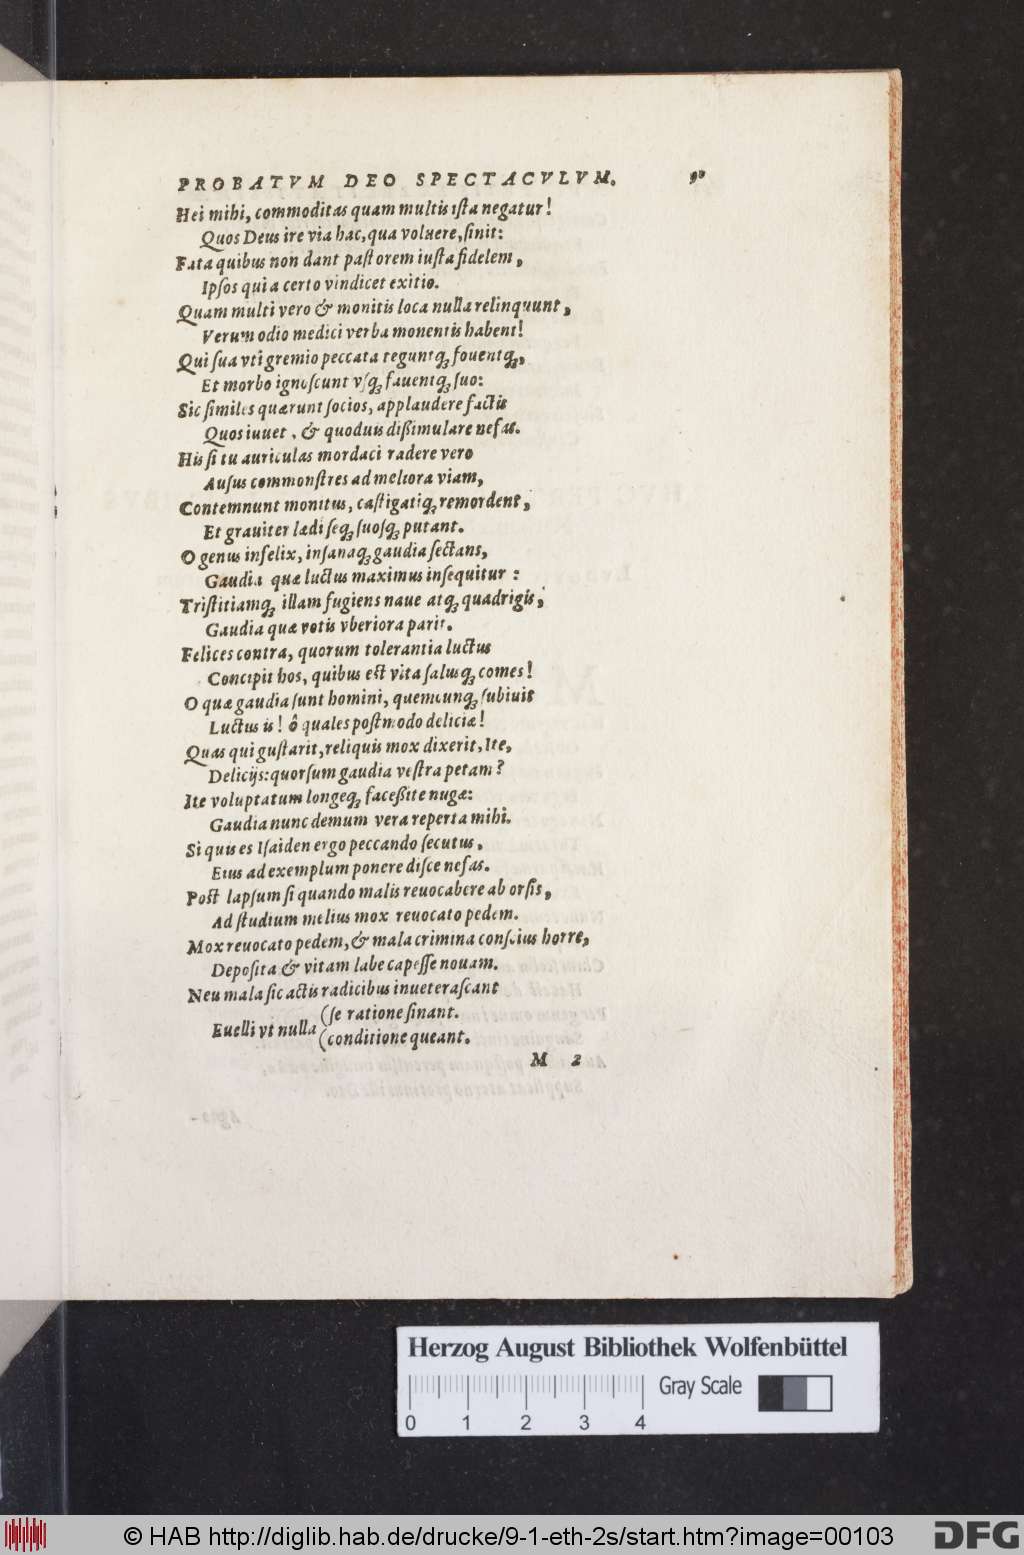 PROBATVM DEO SPECTACVLVM. 90
Hei mihi, commoditas quam multis ista negatur!
Quos Deus ire via hac, qua voluere, sinit:
Fata quibus non dant pastorem iusta fidelem,
Ipsos qui a certo vindicet exitio.
Quam multi vero & monitis loca nulla relinquunt,
Verum odio medici verba monentis habent!
Qui sua vti gremio peccata teguntq́; fouentq́;,
Et morbo ignoscunt vsq́; fauentq́; suo:
Sic similes quærunt socios, applaudere factis
Quos iuuet, & quoduis dißimulare nefas.
His si tu auriculas mordaci radere vero
Ausus commonstres ad meliora viam,
Contemnunt monitus, castigatiq́; remordent,
Et grauiter lædi seq́; suosq́; putant.
O genus infelix, insanaq́; gaudia sectans,
Gaudia quæ luctus maximus insequitur:
Tristitiamq́; illam fugiens naue atq́; quadrigis,
Gaudia quæ votis vberiora parit.
Felices contra, quorum tolerantia luctus
Concipit hos, quibus est vita salusq́; comes!
O quæ gaudia sunt homini, quemcunq́; subiuit
Luctus is! ô quales postmodo deliciæ!
Quas qui gustarit, reliquis mox dixerit, Ite,
Delicijs: quorsum gaudia vestra petam?
Ite voluptatum longeq́; faceßite nugæ:
Gaudia nunc demum vera reperta mihi.
Si quis es Isaiden ergo peccando secutus,
Eius ad exemplum ponere disce nefas.
Post lapsum si quando malis reuocabere ab orsis,
Ad studium melius mox reuocato pedem.
Mox reuocato pedem, & mala crimina conscius horre,
Deposita & vitam labe capesse nouam.
Neu mala sic actis radicibus inueterascant
Euelli vt nulla (se ratione sinant.
(conditione queant.
M 2
Herzog August Bibliothek Wolfenbüttel
Gray Scale
0 1 2 3 4
© HAB http://diglib.hab.de/drucke/9-1-eth-2s/start.htm?image=00103
DFG